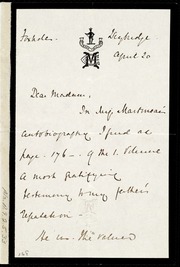 Foxholes. Weybridge
April 20
M
Dear Madam,
In Miss Martineau's
Autobiography I find at
page 176 of the 1. Volume
a most gratifying
testimony to my father's
reputation.
He was the valued